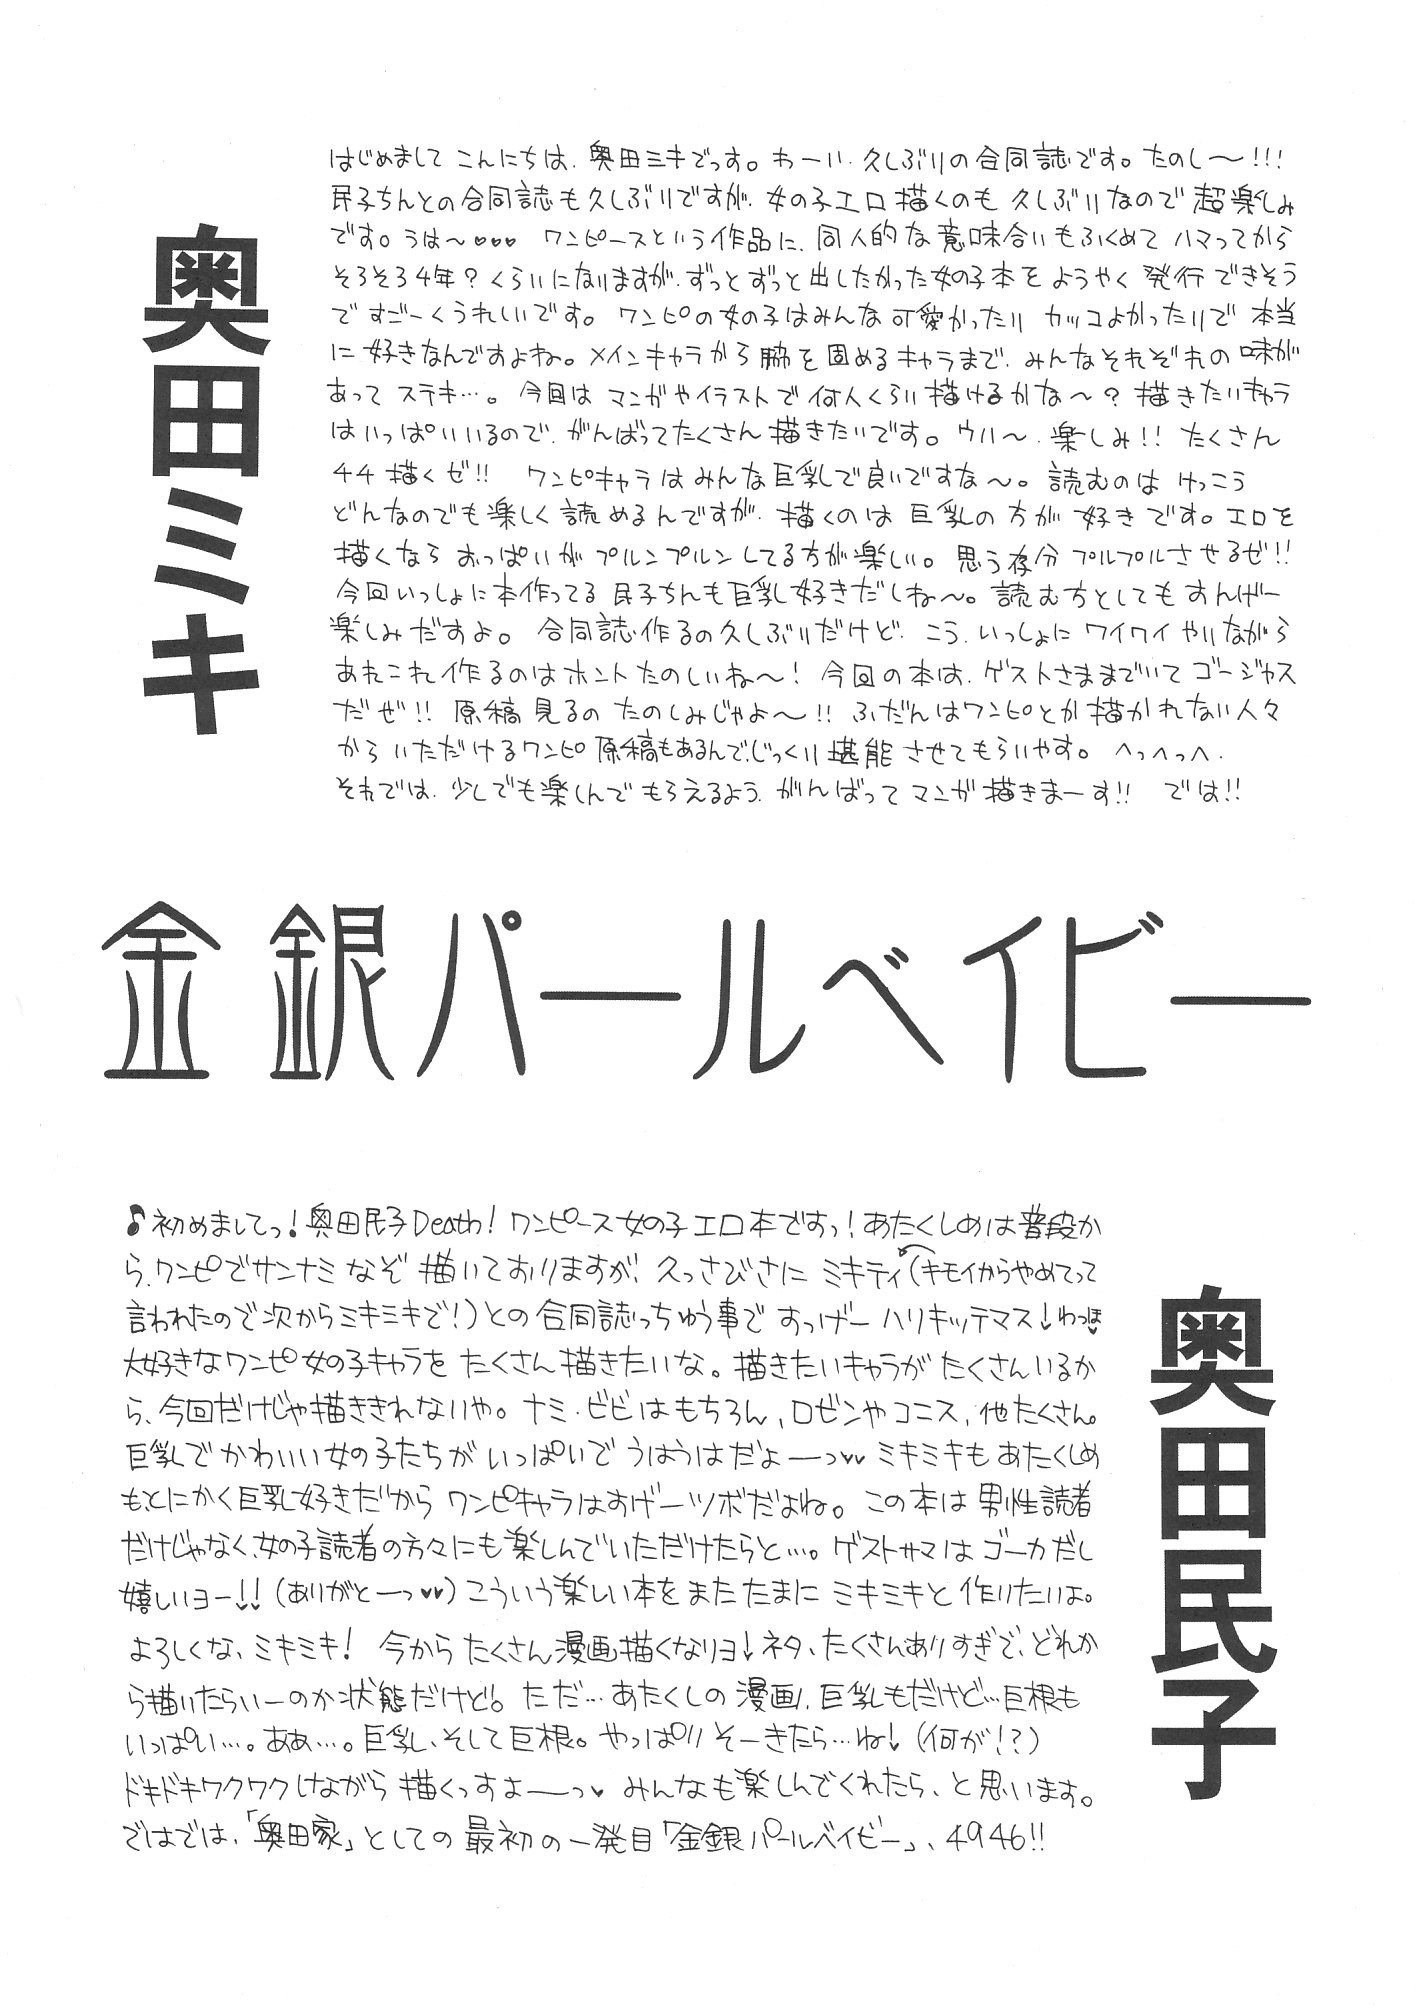 奥田ミキ
はじめまして こんにちは、奥田ミキでっす。わーい、久しぶりの合同誌です。たのし〜!!!
民子ちんとの合同誌も久しぶりですが、女の子エロ描くのも 久しぶりなので 超楽しみ
です。うは〜♥♥♥ ワンピースという作品に、同人的な意味合いもふくめて ハマってから
そろそろ4年？くらいになりますが、ずっとずっと出したかった女の子本を ようやく 発行できそう
で すごーくうれしいです。 ワンピの女の子はみんな可愛かったり カッコよかったりで 本当
に好きなんですよね。メインキャラから脇を固めるキャラまで、みんなそれぞれの味が
あって ステキ…。今回は マンガやイラストで 何人くらい描けるかな〜？描きたいキャラ
はいっぱいいるので、がんばってたくさん描きたいです。ウハ〜、楽しみ!! たくさん
チチ描くぜ!! ワンピキャラはみんな巨乳で良いですな〜。読むのは けっこう
どんなのでも楽しく読めるんですが、描くのは 巨乳の方が好きです。エロを
描くなら おっぱいが プルンプルンしてる方が楽しい。思う存分 プルプルさせるぜ!!
今回いっしょに本作ってる 民子ちんも巨乳好きだしね〜。読む方としてもすんげー
楽しみだすよ。合同誌作るの久しぶりだけど、こう、いっしょに ワイワイやりながら
あれこれ作るのはホントたのしいね〜！今回の本は、ゲストさままでいて ゴージャス
だぜ!! 原稿見るの たのしみじゃよ〜!! ふだんはワンピとか描かれない人々
から いただけるワンピ原稿もあるんで、じっくり堪能させてもらいやす。へっへっへ。
それでは、少しでも楽しんで もらえるよう、がんばってマンガ描きまーす!! では!!
金銀パールベイビー
♪初めましてっ！奥田民子Death！ワンピース女の子エロ本ですっ！あたくしめは普段か
ら、ワンピでサンナミなぞ 描いておりますが、久っさびさに ミキティ(キモイからやめてって
言われたので次からミキミキで！)との 合同誌っちゅう事で すっげー ハリキッテマス♥わっほ♥
大好きなワンピ女の子キャラを たくさん描きたいな。描きたいキャラが たくさんいるか
ら、今回だけじゃ描ききれないや。ナミ・ビビはもちろん、ロビンやコニス、他たくさん。
巨乳で かわいい女の子たちが いっぱいで うはうはだよーっ♥♥ ミキミキも あたくしめ
も、とにかく巨乳好きだから ワンピキャラはすげーツボだよね。この本は 男性読者
だけじゃなく、女の子読者の方々にも楽しんでいただけたらと…。ゲストサマは ゴーカだし
嬉しいヨー!! (ありがとーっ♥♥) こういう楽しい本を またたまに ミキミキと 作りたいよ。
よろしくな、ミキミキ！ 今から たくさん漫画描くなりヨ♥ネタ、たくさんありすぎで、どれか
ら描いたらいーのか状態だけど。ただ…あたくしの 漫画、巨乳もだけど…巨根も
いっぱい…。ああ…。巨乳、そして巨根。やっぱりそーきたら…ね♥ (何が!?)
ドキドキワクワクしながら 描くっすよーっ♥ みんなも楽しんでくれたら、と思います。
ではでは、「奥田家」としての 最初の一発目「金銀パールベイビー」、4946!!
奥田民子